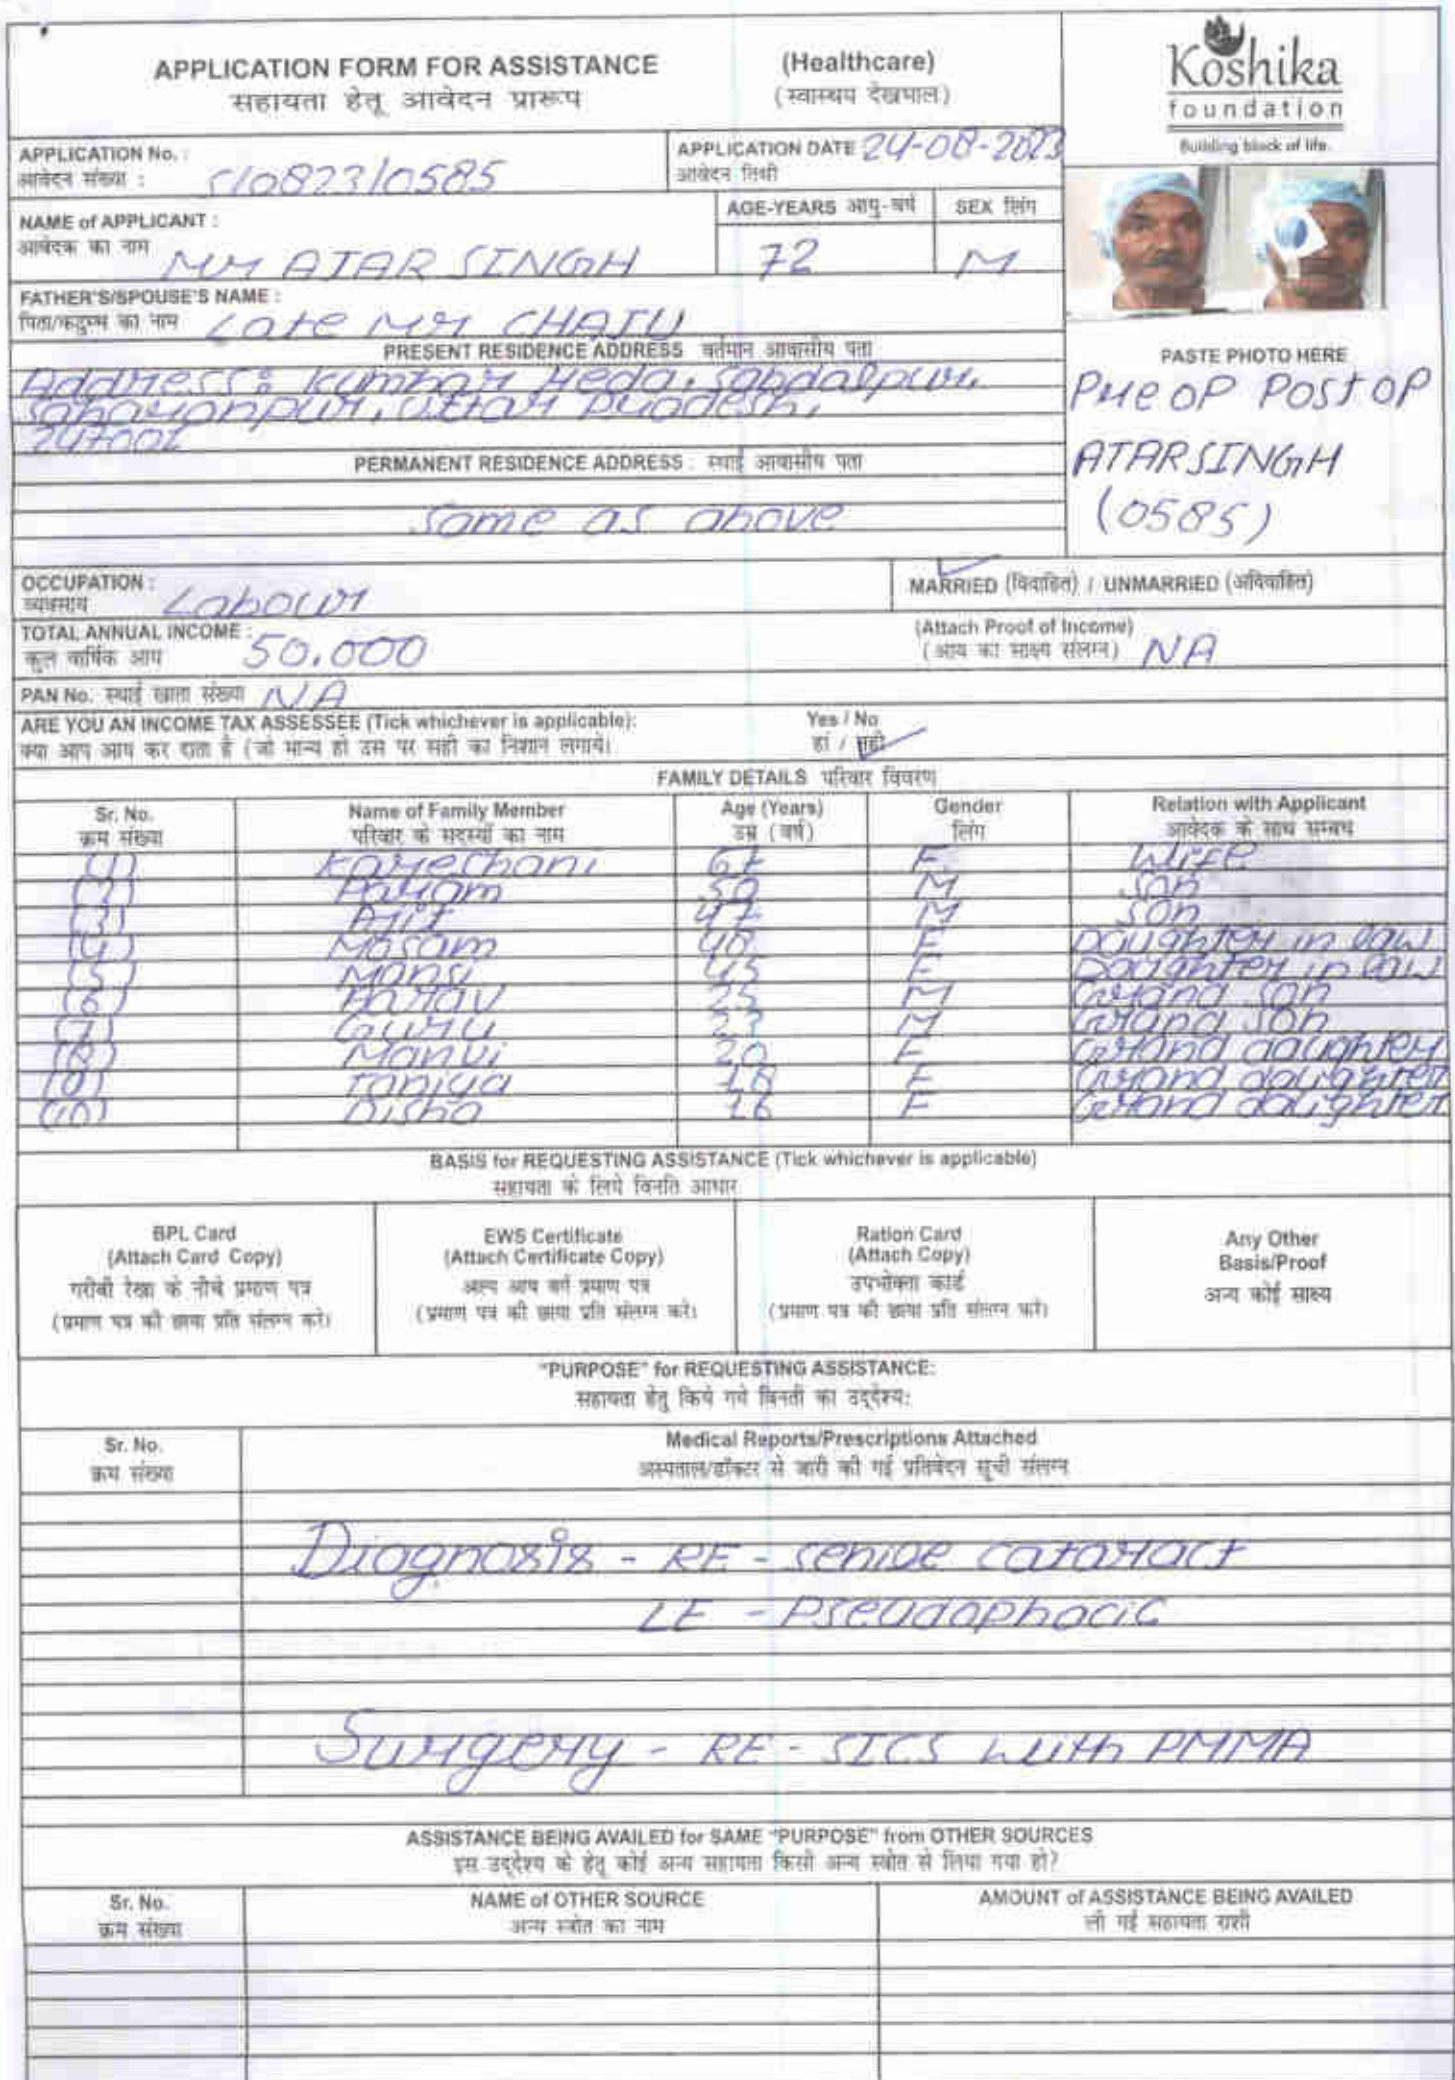 APPLICATION FORM FOR ASSISTANCE (Healthcare)
सहायता हेतू आवेदन प्रारूप (स्वास्थय देखभाल)
Koshika
foundation
Building block of life.
APPLICATION No. :
आवेदन संख्या : S/0823/0585
APPLICATION DATE 24-08-2023
आवेदन तिथी
NAME of APPLICANT :
आवेदक का नाम Mr ATAR SINGH
AGE-YEARS आयु-वर्ष
72
SEX लिंग
M
FATHER'S/SPOUSE'S NAME :
पिता/कटुम्ब का नाम Late Mr CHATU
PRESENT RESIDENCE ADDRESS वर्तमान आवासीय पता
Address: Kumhar Heda, Sabdalpur,
Saharanpur, Uttar Pradesh,
247001
PERMANENT RESIDENCE ADDRESS : स्थाई आवासीय पता
Same as above
PASTE PHOTO HERE
Pre OP Post OP
ATAR SINGH
(0585)
OCCUPATION :
व्यवसाय Labour
MARRIED (विवाहित) / UNMARRIED (अविवाहित)
TOTAL ANNUAL INCOME :
कुल वार्षिक आय 50,000
(Attach Proof of Income)
(आय का साक्ष्य संलग्न) NA
PAN No. स्थाई खाता संख्या NA
ARE YOU AN INCOME TAX ASSESSEE (Tick whichever is applicable): Yes / No
क्या आप आय कर दाता है (जो मान्य हो उस पर सही का निशान लगाये। हां / नही
FAMILY DETAILS परिवार विवरण
Sr. No. Name of Family Member Age (Years) Gender Relation with Applicant
क्रम संख्या परिवार के सदस्यों का नाम उम्र (वर्ष) लिंग आवेदक के साथ सम्बध
(1) 67 F Wife
(2) 50 M Son
(3) Ajit 47 M Son
(4) Mosam 48 F Daughter in law
(5) Mansi 45 F Daughter in law
(6) 25 M Grand Son
(7) Guru 23 M Grand Son
(8) Manvi 20 F Grand daughter
(9) Taniya 18 F Grand daughter
(10) Disha 16 F Grand daughter
BASIS for REQUESTING ASSISTANCE (Tick whichever is applicable)
सहायता के लिये विनति आधार
BPL Card
(Attach Card Copy)
गरीबी रेखा के नीचे प्रमाण पत्र
(प्रमाण पत्र की छाया प्रति संलग्न करे।
EWS Certificate
(Attach Certificate Copy)
अल्प आय वर्ग प्रमाण पत्र
(प्रमाण पत्र की छाया प्रति संलग्न करे।
Ration Card
(Attach Copy)
उपभोक्ता कार्ड
(प्रमाण पत्र की छाया प्रति संलग्न करे।
Any Other
Basis/Proof
अन्य कोई साक्ष्य
"PURPOSE" for REQUESTING ASSISTANCE:
सहायता हेतु किये गये विनती का उद्देश्य:
Sr. No. Medical Reports/Prescriptions Attached
क्रम संख्या अस्पताल/डॉक्टर से जारी की गई प्रतिवेदन सूची संलग्न
Diagnosis - RE - senile cataract
LE - Pseudophacic
Surgery - RE - SICS with PMMA
ASSISTANCE BEING AVAILED for SAME "PURPOSE" from OTHER SOURCES
इस उद्देश्य के हेतू कोई अन्य सहायता किसी अन्य स्त्रोत से लिया गया हो?
Sr. No. NAME of OTHER SOURCE AMOUNT of ASSISTANCE BEING AVAILED
क्रम संख्या अन्य स्त्रोत का नाम ली गई सहायता राशी